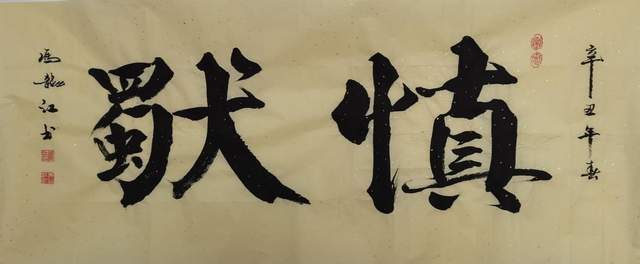 辛丑年春
慎獨
馮龍江书